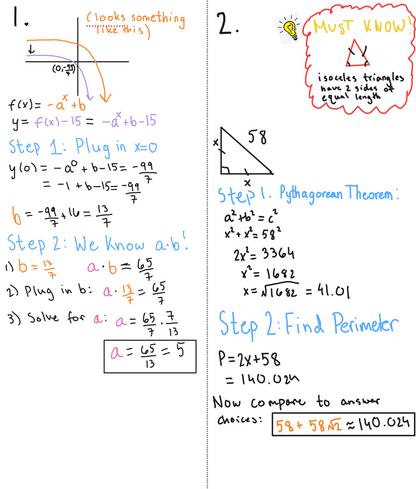 1.
(looks something
like this)
(0,-99/7)
f(x)= -a^x+b
y= f(x)-15 = -a^x+b-15
Step 1: Plug in x=0
y(0) = -a^0+b-15= -99/7
= -1+b-15= -99/7
b= -99/7+16= 13/7
Step 2: We Know a·b!
1) b= 13/7 a·b= 65/7
2) Plug in b: a·13/7= 65/7
3) Solve for a: a= 65/7·7/13
a= 65/13 = 5
2.
MUST KNOW!
isoceles triangles
have 2 sides of
equal length
58
x
x
Step 1. Pythagorean Theorem:
a²+b²=c²
x²+x²=58²
2x²=3364
x²=1682
x=√1682 = 41.01
Step 2: Find Perimeter
P=2x+58
= 140.024
Now compare to answer
choices: 58+58√2≈140.024